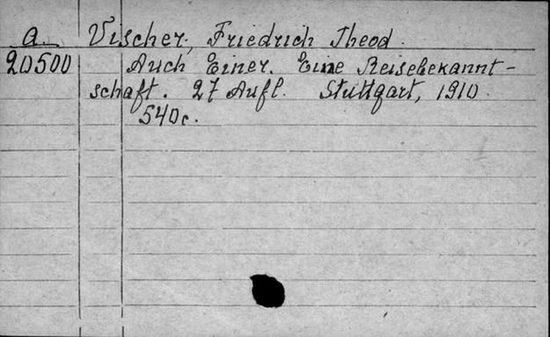 a. Vischer, Friedrich Theod.
20500 Auch Einer. Eine Reisebekannt-
schaft. 27 Aufl. Stuttgart, 1910.
540 c.